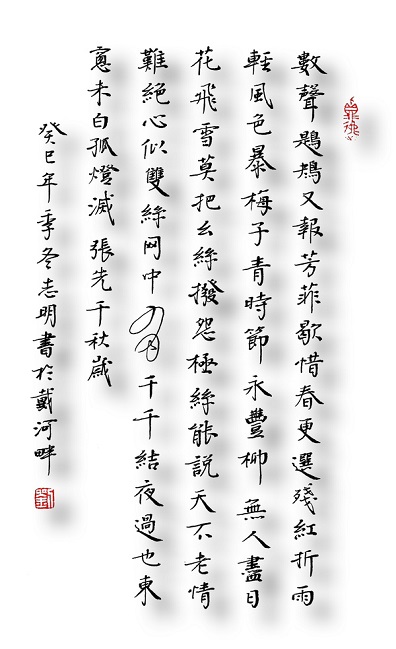 數聲鶗鴂又報芳菲歇惜春更選殘紅折雨
輕風色暴梅子青時節永豐柳無人盡日
花飛雪莫把幺絲撥怨極絲能說天不老情
難絕心似雙絲网中有千千結夜過也東
窻未白孤燈滅 張先千秋歲
癸巳年季冬志明書於戴河畔